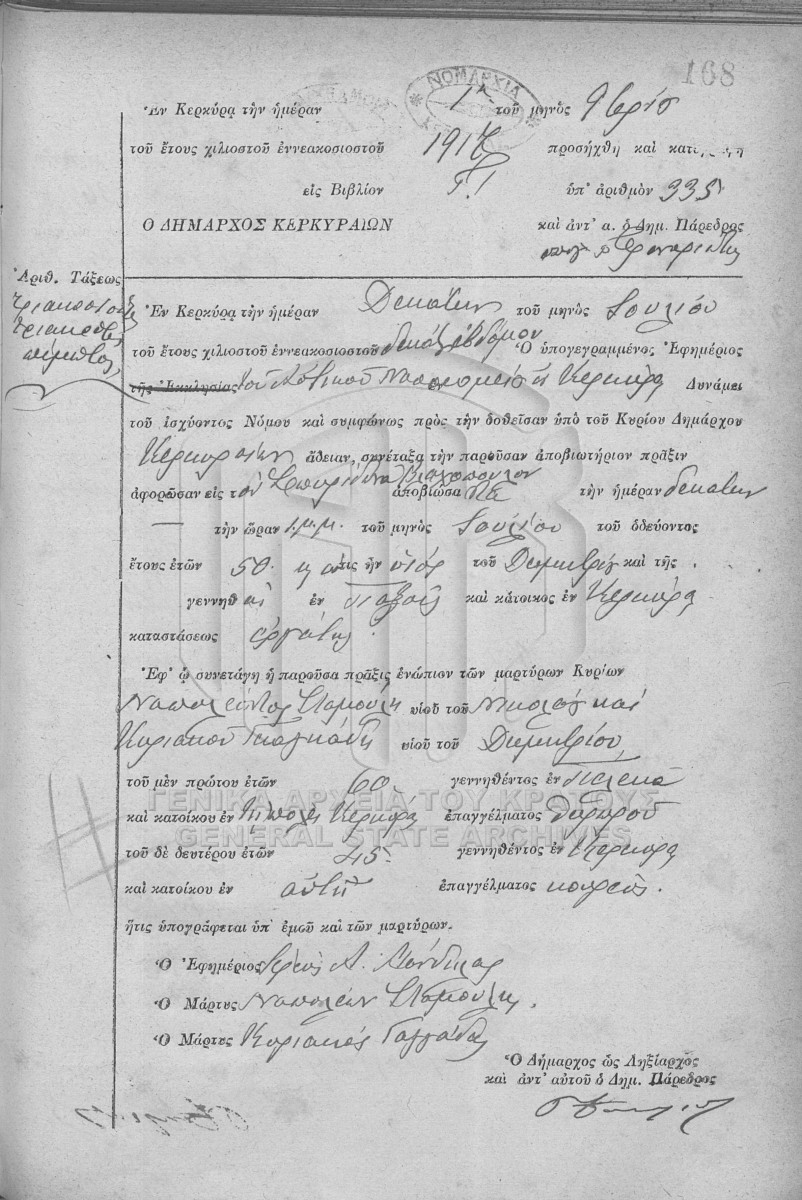 168
ΝΟΜΑΡΧΙΑ
Ἐν Κερκύρᾳ τὴν ἡμέραν 1η τοῦ μηνὸς 9βρίου
τοῦ ἔτους χιλιοστοῦ ἐννεακοσιοστοῦ 1917 προσήχθη καὶ
εἰς Βιβλίον ὑπ' ἀριθμὸν 335
Ο ΔΗΜΑΡΧΟΣ ΚΕΡΚΥΡΑΙΩΝ καὶ ἀντ' α. ὁ Δημ. Πάρεδρος
Ἀριθ. Τάξεως
Τριακοσιοστὸς
τριακοστὸς
πέμπτος
Ἐν Κερκύρᾳ τὴν ἡμέραν Δεκάτην τοῦ μηνὸς Ἰουλίου
τοῦ ἔτους χιλιοστοῦ ἐννεακοσιοστοῦ δεκάτου ἑβδόμου Ὁ ὑπογεγραμμένος Ἐφημέριος
τῆς Ἐκκλησίας τοῦ Ἀστικοῦ Νοσοκομείου Κερκύρας Δυνάμει
τοῦ ἰσχύοντος Νόμου καὶ συμφώνως πρὸς τὴν δοθεῖσαν ὑπὸ τοῦ Κυρίου Δημάρχου
Κερκυραίων ἄδειαν, συνέταξα τὴν παροῦσαν ἀποβιωτήριον πρᾶξιν
ἀφορῶσαν εἰς τὸν Σπυρίδωνα ἀποβιώσα τὴν ἡμέραν δεκάτην
τὴν ὥραν 1 μ.μ. τοῦ μηνὸς Ἰουλίου τοῦ ὁδεύοντος
ἔτους ἐτῶν 50 ἦν υἱὸς τοῦ Δημητρίου καὶ τῆς
γεννηθεὶς ἐν Παξοῖς καὶ κάτοικος ἐν Κερκύρᾳ
καταστάσεως ἐργάτης
Ἐφ' ᾧ συνετάγη ἡ παροῦσα πρᾶξις ἐνώπιον τῶν μαρτύρων Κυρίων
Ναπολέοντος Σταμούλη υἱοῦ τοῦ Νικολάου καὶ
Κυριακοῦ Γαγγάδη υἱοῦ τοῦ Δημητρίου,
τοῦ μὲν πρώτου ἐτῶν 60 γεννηθέντος ἐν Πέλεκα
καὶ κατοίκου ἐν Κερκύρᾳ ἐπαγγέλματος θυρωροῦ
τοῦ δὲ δευτέρου ἐτῶν 45 γεννηθέντος ἐν Κερκύρᾳ
καὶ κατοίκου ἐν αὐτῇ ἐπαγγέλματος κουρεὺς.
ἥτις ὑπογράφεται ὑπ' ἐμοῦ καὶ τῶν μαρτύρων.
Ὁ Ἐφημέριος Ἱερεὺς Α.
Ὁ Μάρτυς Ναπολέων Σταμούλης
Ὁ Μάρτυς Κυριακὸς Γαγγάδης
Ὁ Δήμαρχος ὡς Ληξίαρχος
καὶ ἀντ' αὐτοῦ ὁ Δημ. Πάρεδρος
ΓΕΝΙΚΑ ΑΡΧΕΙΑ ΤΟΥ ΚΡΑΤΟΥΣ
GENERAL STATE ARCHIVES